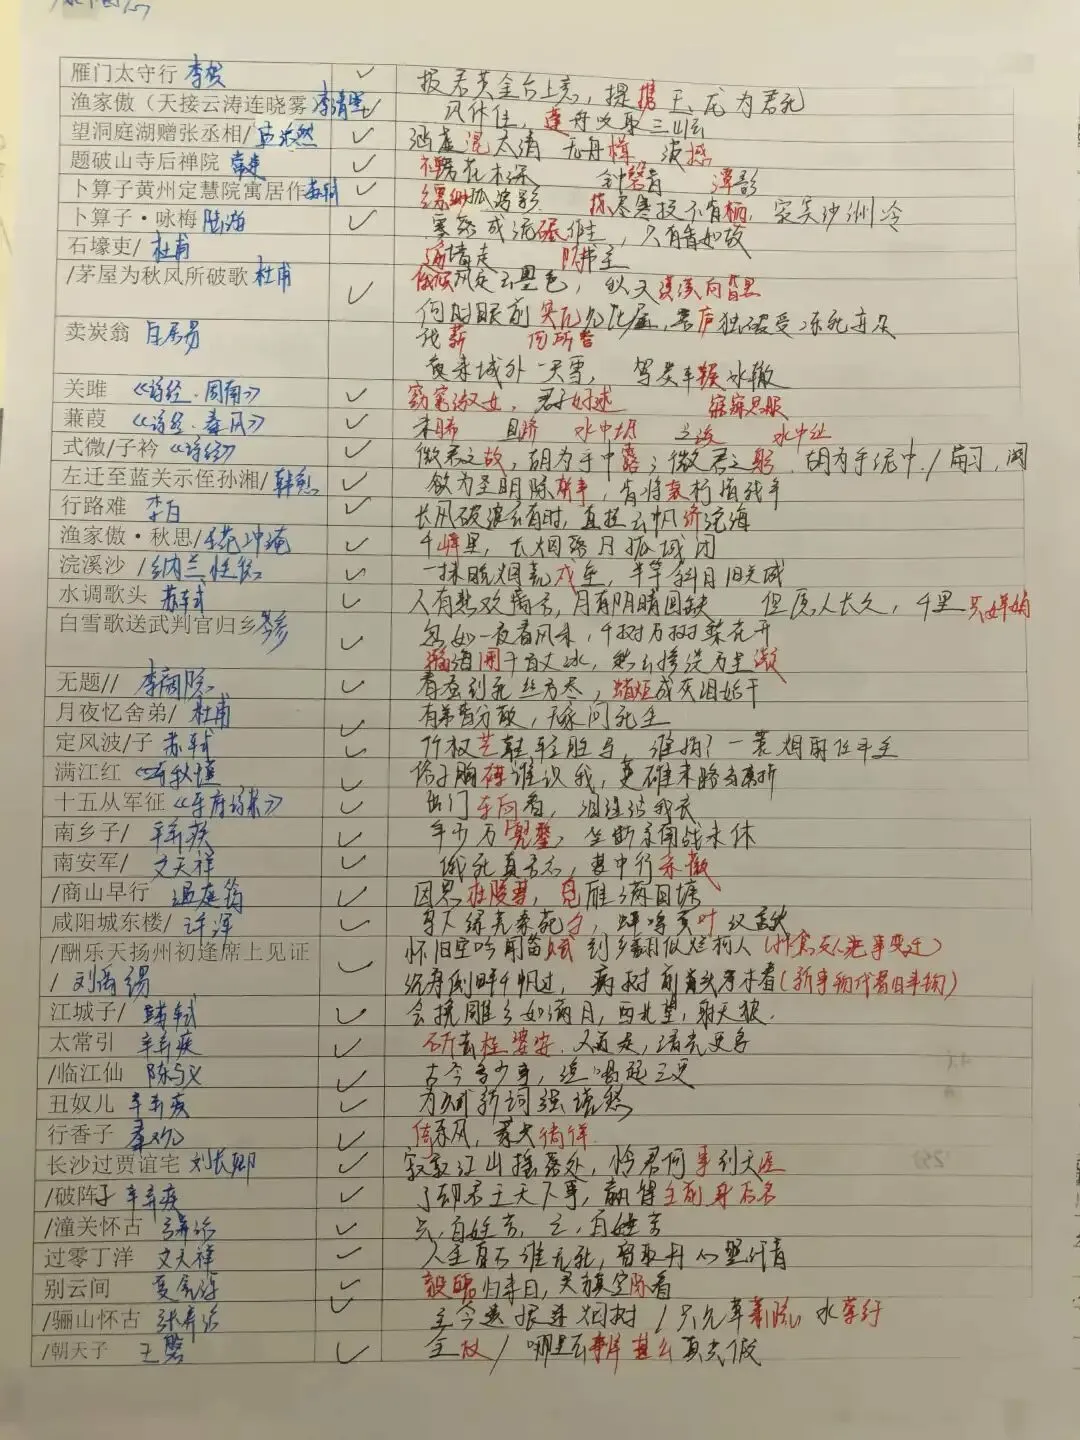 雁门太守行 李贺 ✓ 报君黄金台上意，提携玉龙为君死
渔家傲（天接云涛连晓雾 李清照 ✓ 风休住，蓬舟吹取三山去
望洞庭湖赠张丞相/ 孟浩然 ✓ 涵虚混太清 无舟楫 波撼
题破山寺后禅院 常建 ✓ 花木深 钟磬音 潭影
卜算子黄州定慧院寓居作 苏轼 ✓ 缥缈孤鸿影 拣尽寒枝不肯栖，寂寞沙洲冷
卜算子·咏梅 陆游 ✓ 零落成泥碾作尘，只有香如故
石壕吏/ 杜甫 ✓ 逾墙走
/茅屋为秋风所破歌 杜甫 ✓ 俄顷风定云墨色，秋天漠漠向昏黑
何时眼前突兀见此屋，吾庐独破受冻死亦足
卖炭翁 白居易 伐薪 何所营
夜来城外一尺雪， 驾炭车辗冰辙
关雎 《诗经·周南》 ✓ 窈窕淑女，君子好逑 寤寐思服
蒹葭 《诗经·秦风》 ✓ 未晞 且跻 水中坻 之涘 水中沚
式微/子衿 《诗经》 ✓ 微君之故，胡为乎中露；微君之躬，胡为乎泥中。/
左迁至蓝关示侄孙湘/ 韩愈 ✓ 欲为圣明除弊事，肯将衰朽惜残年
行路难 李白 ✓ 长风破浪会有时，直挂云帆济沧海
渔家傲·秋思/ 范仲淹 ✓ 千嶂里，长烟落日孤城闭
浣溪沙 /纳兰性德 ✓ 一抹晚烟荒戍垒，半竿斜日旧关城
水调歌头 苏轼 ✓ 人有悲欢离合，月有阴晴圆缺 但愿人长久，千里共婵娟
白雪歌送武判官归乡 岑参 ✓ 忽如一夜春风来，千树万树梨花开
瀚海阑干百丈冰，愁云惨淡万里凝
无题// 李商隐 ✓ 春蚕到死丝方尽，蜡炬成灰泪始干
月夜忆舍弟/ 杜甫 ✓ 有弟皆分散，无家问死生
定风波/子 苏轼 ✓ 竹杖芒鞋轻胜马 谁怕？一蓑烟雨任平生
满江红 秋瑾 ✓ 俗子胸襟谁识我，英雄末路当磨折
十五从军征 《乐府诗集》 ✓ 出门东向看，泪落沾我衣
南乡子/ 辛弃疾 ✓ 年少万兜鍪，坐断东南战未休
南安军/ 文天祥 ✓ 饿死真吾志，梦中行采薇
/商山早行 温庭筠 ✓ 因思杜陵梦，凫雁满回塘
咸阳城东楼/ 许浑 ✓ 鸟下绿芜秦苑夕，蝉鸣黄叶汉宫秋
/酬乐天扬州初逢席上见证 ✓ 怀旧空吟闻笛赋 到乡翻似烂柯人
/ 刘禹锡 沉舟侧畔千帆过，病树前头万木春（新事物代替旧事物）
江城子/ 苏轼 ✓ 会挽雕弓如满月，西北望，射天狼。
太常引 辛弃疾 ✓ 斫去桂婆娑，人道是，清光更多
/临江仙 陈与义 ✓ 古今多少事，渔唱起三更
丑奴儿 辛弃疾 ✓ 为赋新词强说愁
行香子 秦观 ✓ 倚东风，豪兴徜徉
长沙过贾谊宅 刘长卿 ✓ 寂寂江山摇落处，怜君何事到天涯
/破阵子 辛弃疾 ✓ 了却君王天下事，赢得生前身后名
/潼关怀古 ✓ 兴，百姓苦，亡，百姓苦
过零丁洋 文天祥 ✓ 人生自古谁无死，留取丹心照汗青
别云间 夏完淳 ✓ 毅魄归来日，灵旗空际看
/骊山怀古 张养浩 ✓ 至今遗恨迷烟树 / 只见草萧疏，水萦纡
/朝天子 王磐 ✓ 全仗 / 哪里去辨甚么真共假